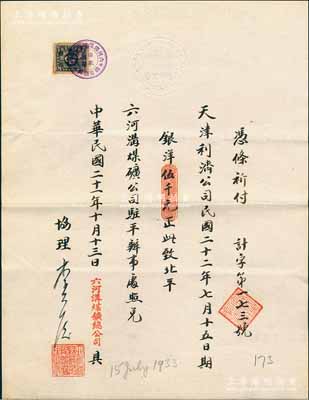 憑條祈付 計字第一七三號
天津利濟公司民國二十二年七月十五日期
銀洋伍千元正此致北平
六河溝煤礦公司駐平辦事處照兌
中華民國二十一年十月十三日
六河溝煤鑛總公司 具
協理
15 July 1933
173